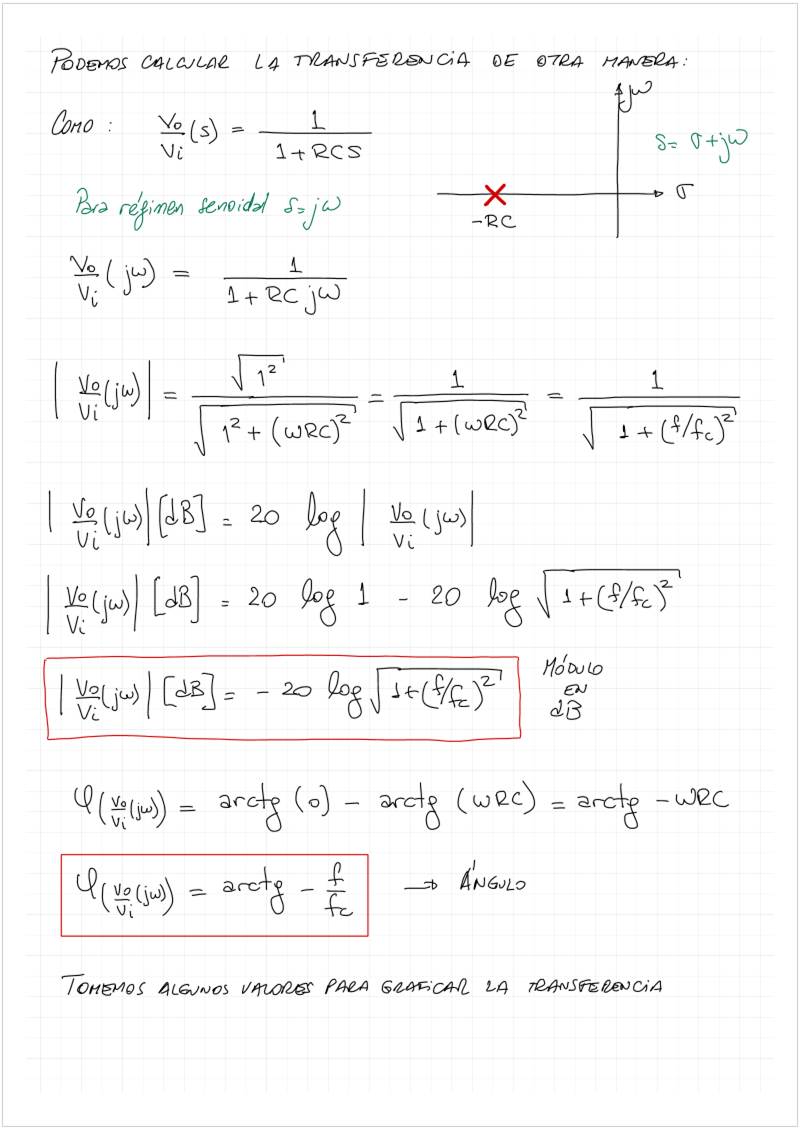 PODEMOS CALCULAR LA TRANSFERENCIA DE OTRA MANERA:
jω
COMO: Vo/Vi (s) = 1/(1+RCS)
s = σ+jω
σ
-RC
Para régimen senoidal s=jω
Vo/Vi (jω) = 1/(1+RC jω)
|Vo/Vi (jω)| = √1²/√(1²+(ωRC)²) = 1/√(1+(ωRC)²) = 1/√(1+(f/fc)²)
|Vo/Vi (jω)| [dB] = 20 log |Vo/Vi (jω)|
|Vo/Vi (jω)| [dB] = 20 log 1 - 20 log √(1+(f/fc)²)
|Vo/Vi (jω)| [dB] = -20 log √(1+(f/fc)²)
MÓDULO
EN
dB
φ(Vo/Vi (jω)) = arctg (0) - arctg (ωRC) = arctg -ωRC
φ(Vo/Vi (jω)) = arctg - f/fc → ÁNGULO
TOMEMOS ALGUNOS VALORES PARA GRAFICAR LA TRANSFERENCIA